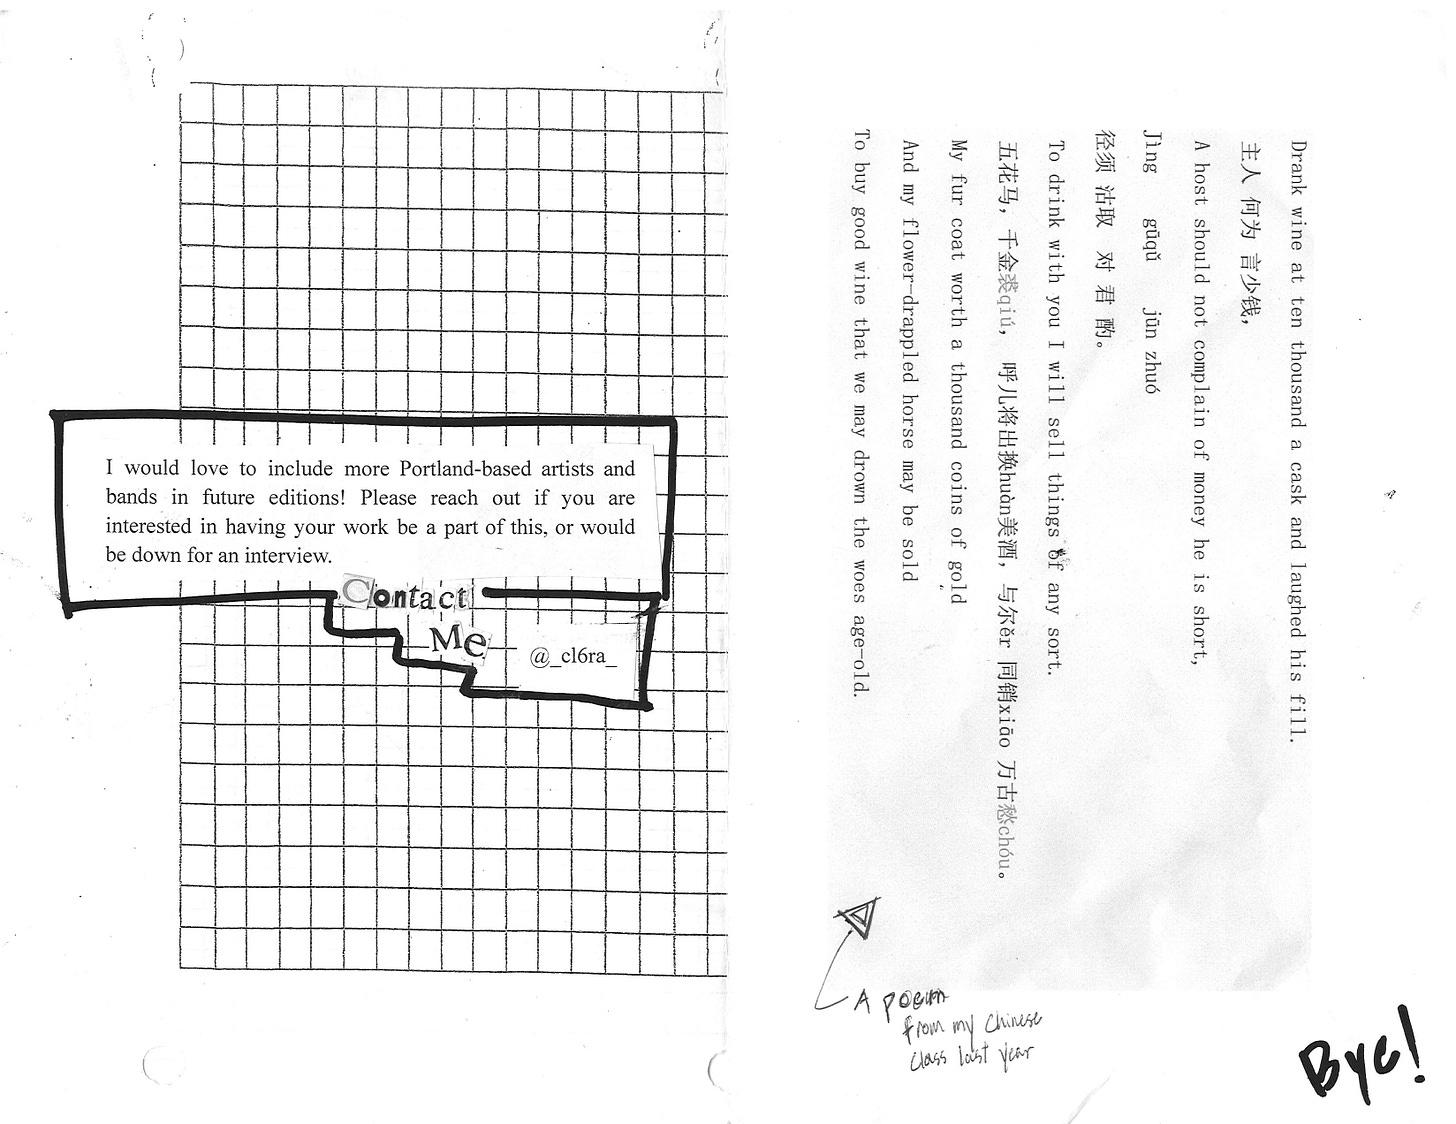 I would love to include more Portland-based artists and
bands in future editions! Please reach out if you are
interested in having your work be a part of this, or would
be down for an interview.
Contact
Me
@_cl6ra_
Drank wine at ten thousand a cask and laughed his fill.
主人 何为 言少钱，
A host should not complain of money he is short,
Jìng gūqǔ jūn zhuó
径须 沽取 对 君 酌。
To drink with you I will sell things of any sort.
五花马，千金裘qiú， 呼儿将出换huàn美酒，与尔ěr 同销xiāo 万古愁chóu。
My fur coat worth a thousand coins of gold
And my flower-drappled horse may be sold
To buy good wine that we may drown the woes age-old.
A poem
from my Chinese
class last year
Bye!